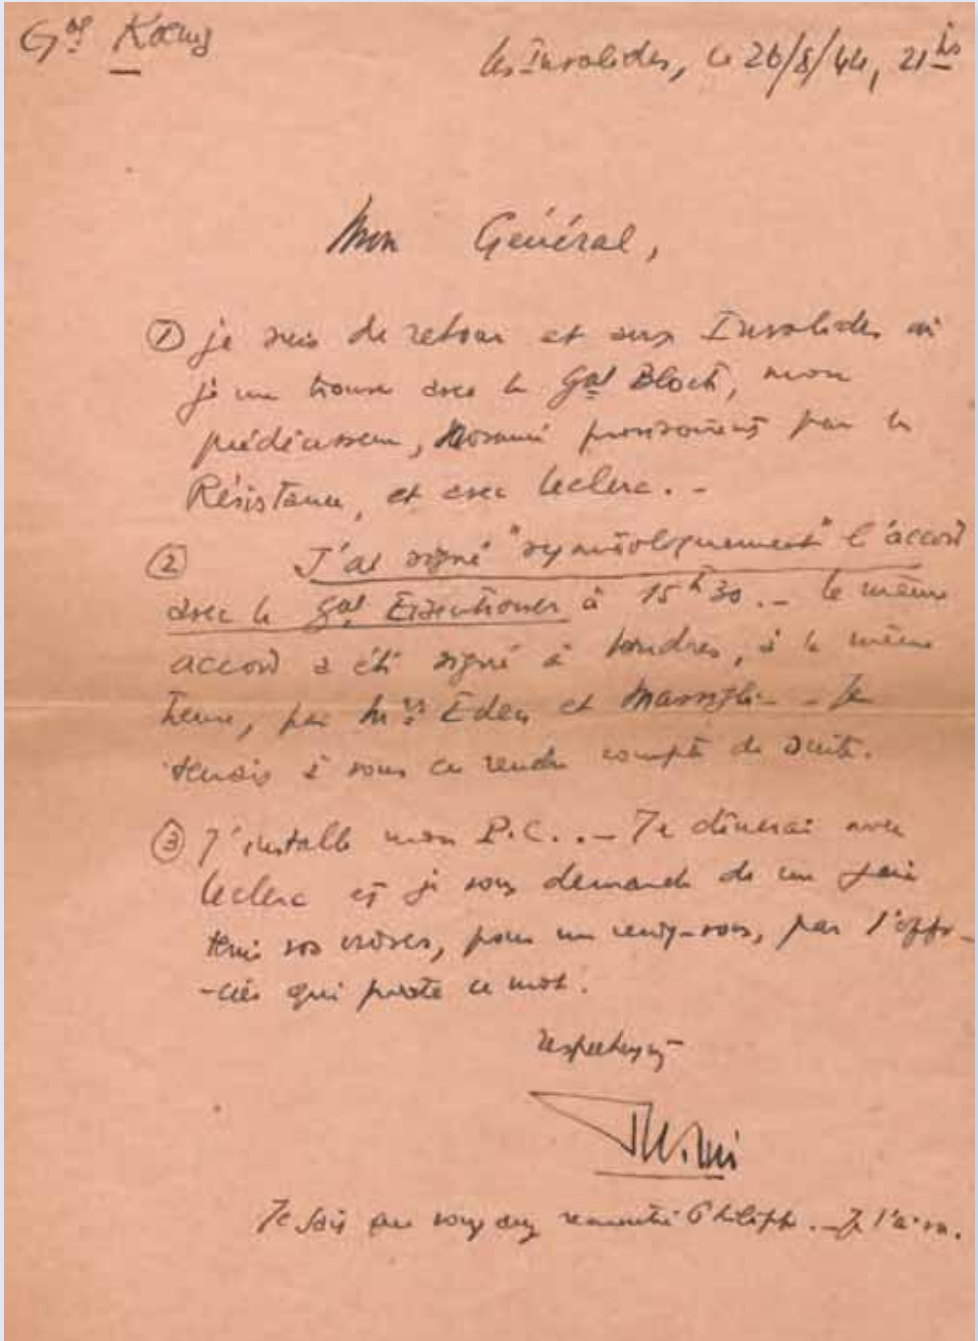 Gal Koenig
les Invalides, le 26/8/44, 21 hs
Mon Général,
① je suis de retour et aux Invalides où
je me trouve avec le Gal Bloch, mon
prédécesseur, nommé provisoirement par la
Résistance, et avec Leclerc. -
② J'ai signé "symboliquement" l'accord
avec le Gal Eisenhower à 15h30. - le même
accord a été signé à Londres, à la même
heure, par Mrs Eden et Massigli - Je
tenais à vous en rendre compte de suite.
③ J'installe mon P.C.. - Je dînerai avec
Leclerc et je vous demande de me faire
tenir vos ordres, pour un rendez-vous, par l'offi-
-cier qui porte ce mot.
respectueusement
Je sais que vous avez rencontré Philippe. - Je l'ai vu.